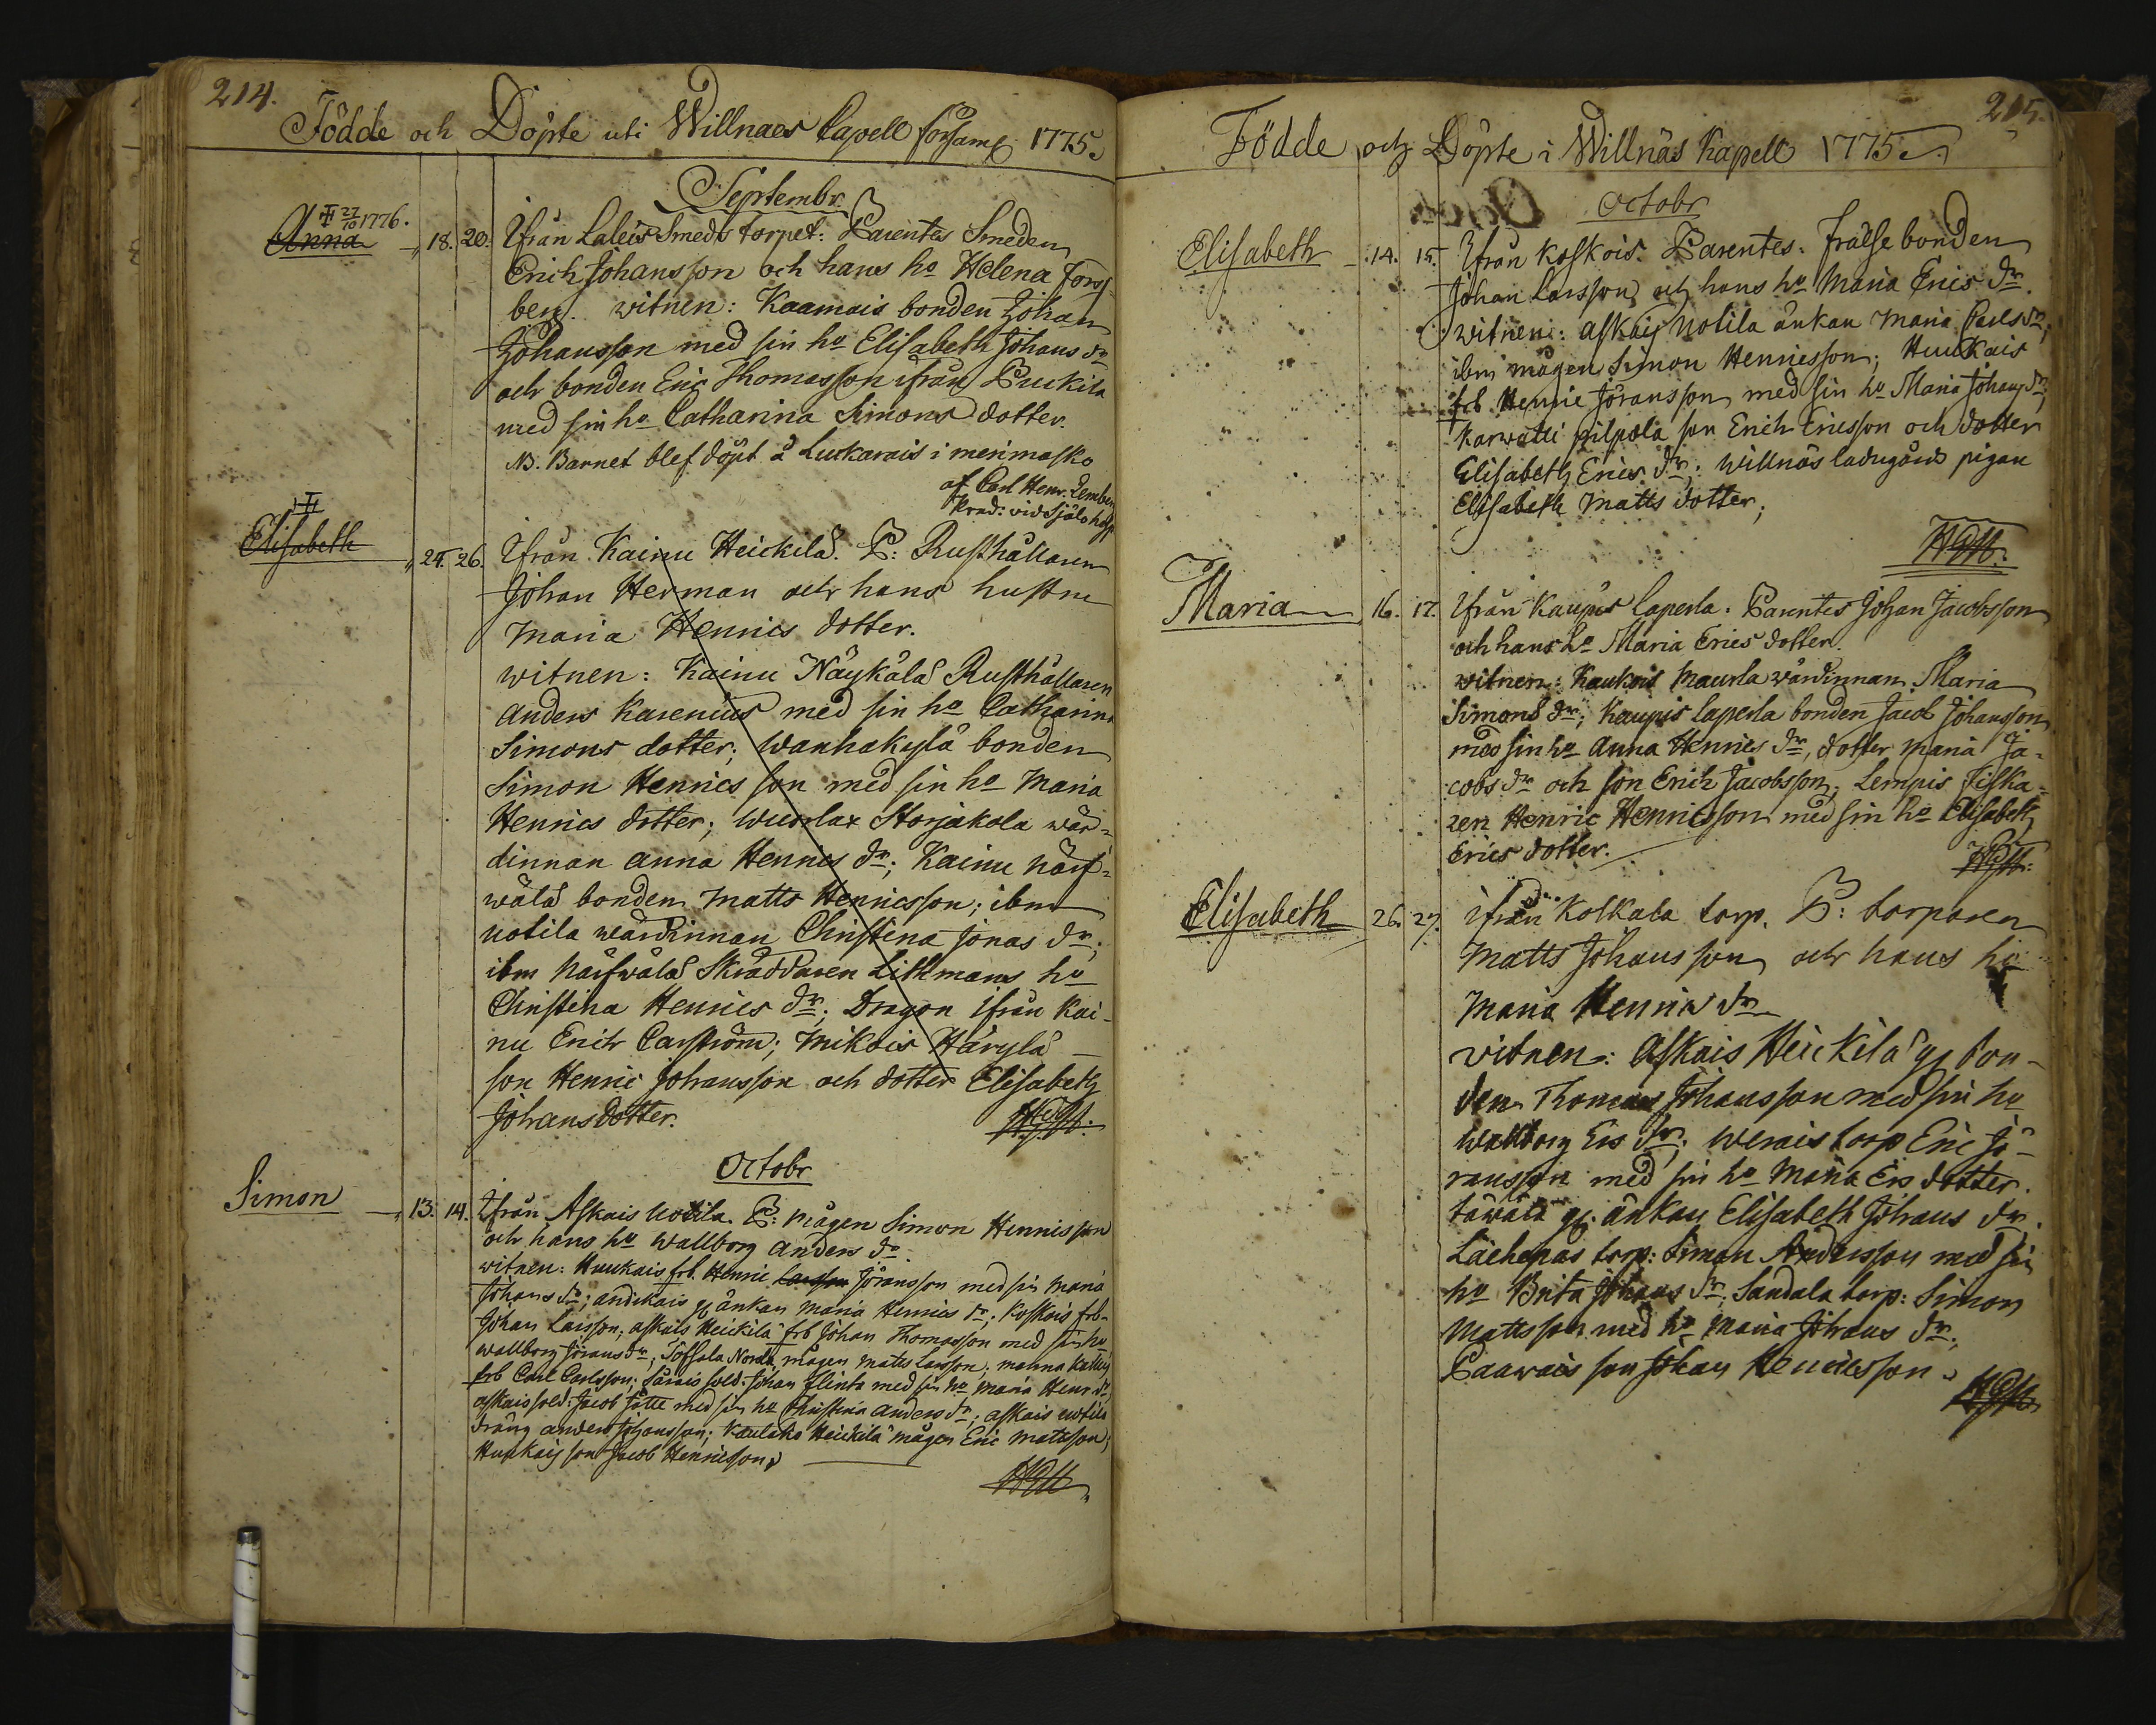 214.
Födde och Döpte uti Willnaes Capell församl 1775.
Septembr.
╪ 27/10 1776.
Anna 18. 20. Ifrån Laleis Smeds torpet: Parentes Smeden
Erich Johansson och hans ho Helena Fors-
berg. witnen: Kaamais bonden Johan
Johansson med sin ho Elisabeth Johans dr
och bonden Eric Thomasson ifrån Puckila
med sin ho Catharina Simons dotter.
NB. Barnet blef döpt å Luckarais i merimasko
af Carl Henr. Lemberg
Pred: vid Själo hosp
╪
Elisabeth 24. 26. Ifrån Kainu Heickilä. P: Rusthållaren
Johan Herman och hans hustru
Maria Henrics dotter.
witnen: Kainu Näykälä Rusthållaren
Anders Karenius med sin ho Catharina
Simons dotter; Wanhakylä bonden
Simon Henrics son med sin ho Maria
Henrics dotter; Wuorlax Storjakola wär-
dinnan Anna Henrics dr; Kainu Närf-
wälä bonden Matts Henricsson; ibm
Uotila wärdinnan Christina Jonas dr;
ibm Närfwälä Skräddaren Lithmans ho
Christina Henrics dr; Dragon ifrån Kai-
nu Erich Carström; Mikois Häryla
son Henric Johansson och dotter Elisabeth
Johansdotter.
Octobr
Simon 13. 14. Ifrån Askais Uotila. P: Mågen Simon Henrisson
och hans ho Wallborg Anders dr
witnen: Huukais frb. Henric Larsson Jöransson med sin Maria
Johans dr; Andikais gl änkan Maria Henrics dr; Koskois frb.
Johan Larsson; Askais Heickilä frb Johan Thomasson med sin ho
Wallborg Jörans dr; Toffala Norda mågen Matts Larsson; Manna
frb Carl Carlsson; Särais sold: Johan Flinta med sin ho Maria Henr. dr
Askais sold: Jacob Jätte med sin ho Christina Anders dr; Askais Uotila
dräng Anders Johansson; Kaulako Heickilä mågen Eric Mattsson;
Huukais son Jacob Henricsson.
215.
Födde och Döpte i Willnäs Kapell 1775.
Octobr
Elisabeth 14. 15. Ifrån Koskois. Parentes: Frälse bonden
Johan Larsson och hans ho Maria Erics dr.
witnen: Askais Uotila änkan Maria Carls dr;
ibm mågen Simon Henricsson; Huukais
frb Henric Jöransson med sin ho Maria Johans dr;
Karwatti pilpola son Erich Ericsson och dotter
Elisabeth Erics dr; Willnäs ladugårds pigan
Elisabeth Matts dotter;
Maria 16. 17. Ifrån Kaupis Laperla. Parentes Johan Jacobsson
och hans ho Maria Erics dotter.
witnen: Kaukois Maurla wärdinnan Maria
Simons dr; Kaupis Laperla bonden Jacob Johansson
med sin ho Anna Henrics dr, dotter Maria Ja-
cobs dr och son Erich Jacobsson; Lempis Fiska-
ren Henric Henricsson med sin ho Elisabeth
Erics dotter.
Elisabeth 26. 27. Ifrån Kolkala torp. P: torparen
Matts Johansson och hans ho
Maria Henrics dr
witnen: Askais Heickilä gl bon-
den Thomas Johansson med sin ho
Wallborg Ers dr; Werais torp Eric Jö-
ransson med sin ho Maria Ers dotter.
gl. änkan Elisabeth Johans dr.
Laehepas torp: Simon Andersson med sin
ho Brita Johans dr; Sandala torp: Simon
Mattsson med ho Maria Johans dr;
Paawais son Johan Henricsson.